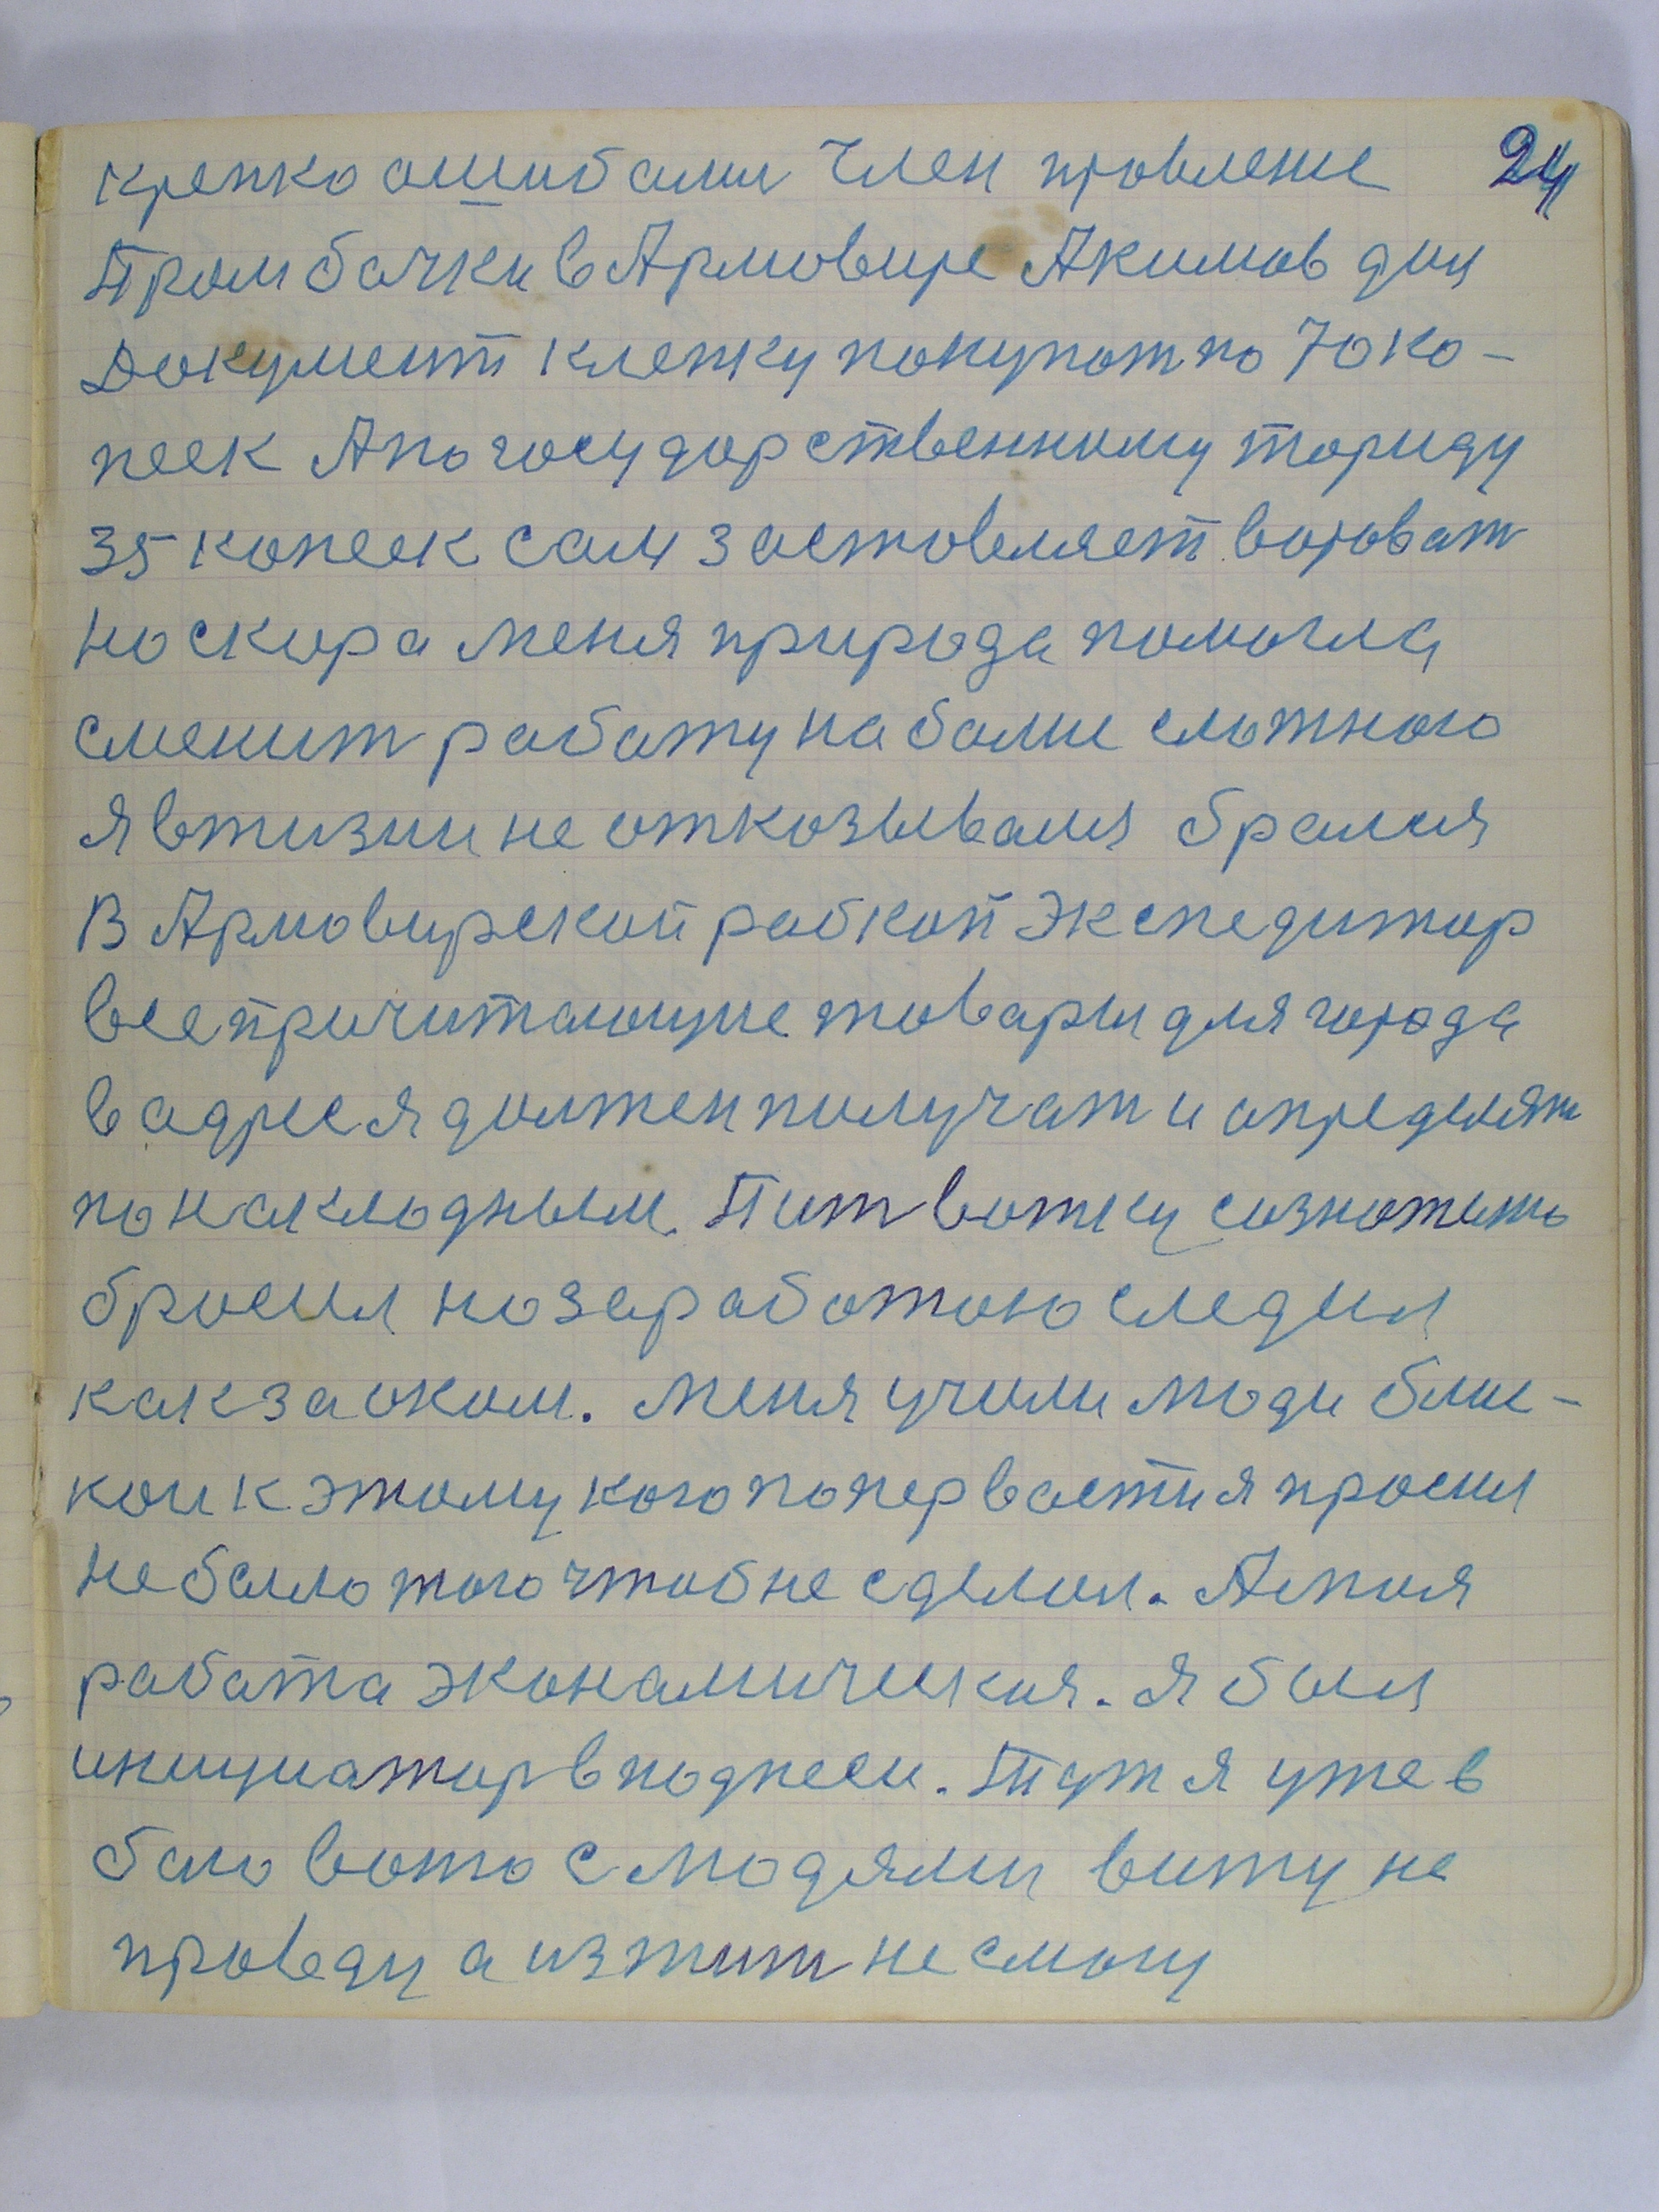 24
крепко ошибами Член провление
Пром бочки в Армовире Акимов дил
Документ клепку покупат по 70 ко-
пеек А по государственномуториду
35 копеек сам зостовляет вороват
но скора меня природа помогла
сменит работу на боме сложного
я в жизни не отказываля бралия
в Армовирской рабкоп экспедитор
все причитающие товары для города
в адрес я должен получат и определят
по накладным. Пит вотку
бросил но за работою следил
как за оком. Меня учили люди бли-
кои к этому кого попервасти я просил
не было того чтоб не сделал. А моя
работа экономическия. я был
инициатор в поднеси. Тут я уже в
баловото с людями вижу не
проведу а изжит не смогу